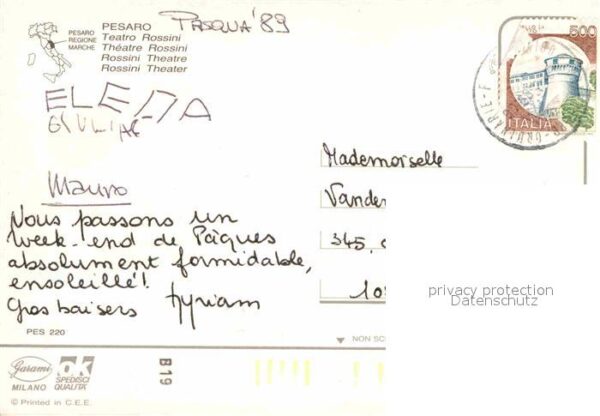 PESARO
REGIONE
MARCHE
PESARO
Teatro Rossini
Théatre Rossini
Rossini Theatre
Rossini Theater
PASQUA '89
500
ITALIA
ELENA
Mauro
Nous passons un
week-end de Pâques
absolument formidable,
ensoleillé!
Gros baisers
Mademoiselle
Vander
345,
10
privacy protection
Datenschutz
PES 220
NON SC
Garami
MILANO
OK
SPEDISCI
QUALITA'
B19
© Printed in C.E.E.